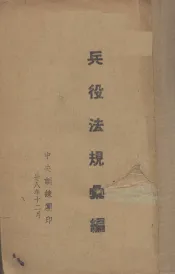 兵役法規彙編
中央訓練團印
廿八年十二月